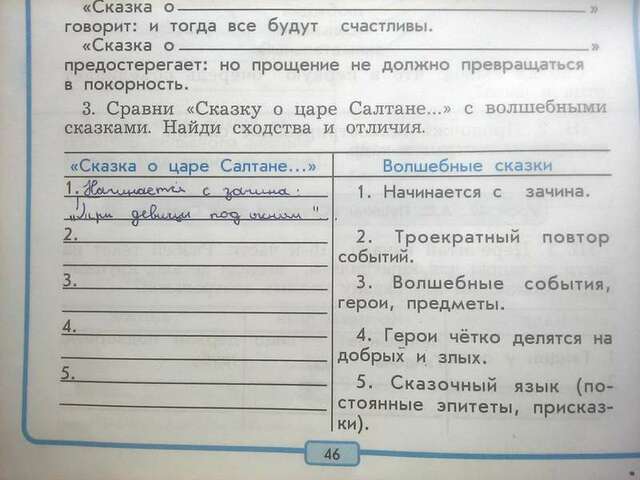 «Сказка о »
говорит: и тогда все будут счастливы.
«Сказка о »
предостерегает: но прощение не должно превращаться
в покорность.
3. Сравни «Сказку о царе Салтане...» с волшебными
сказками. Найди сходства и отличия.
«Сказка о царе Салтане...»
1. Начинается с зачина:
„Три девицы под окном".
2.
3.
4.
5.
Волшебные сказки
1. Начинается с зачина.
2. Троекратный повтор
событий.
3. Волшебные события,
герои, предметы.
4. Герои чётко делятся на
добрых и злых.
5. Сказочный язык (по-
стоянные эпитеты, присказ-
ки).
46